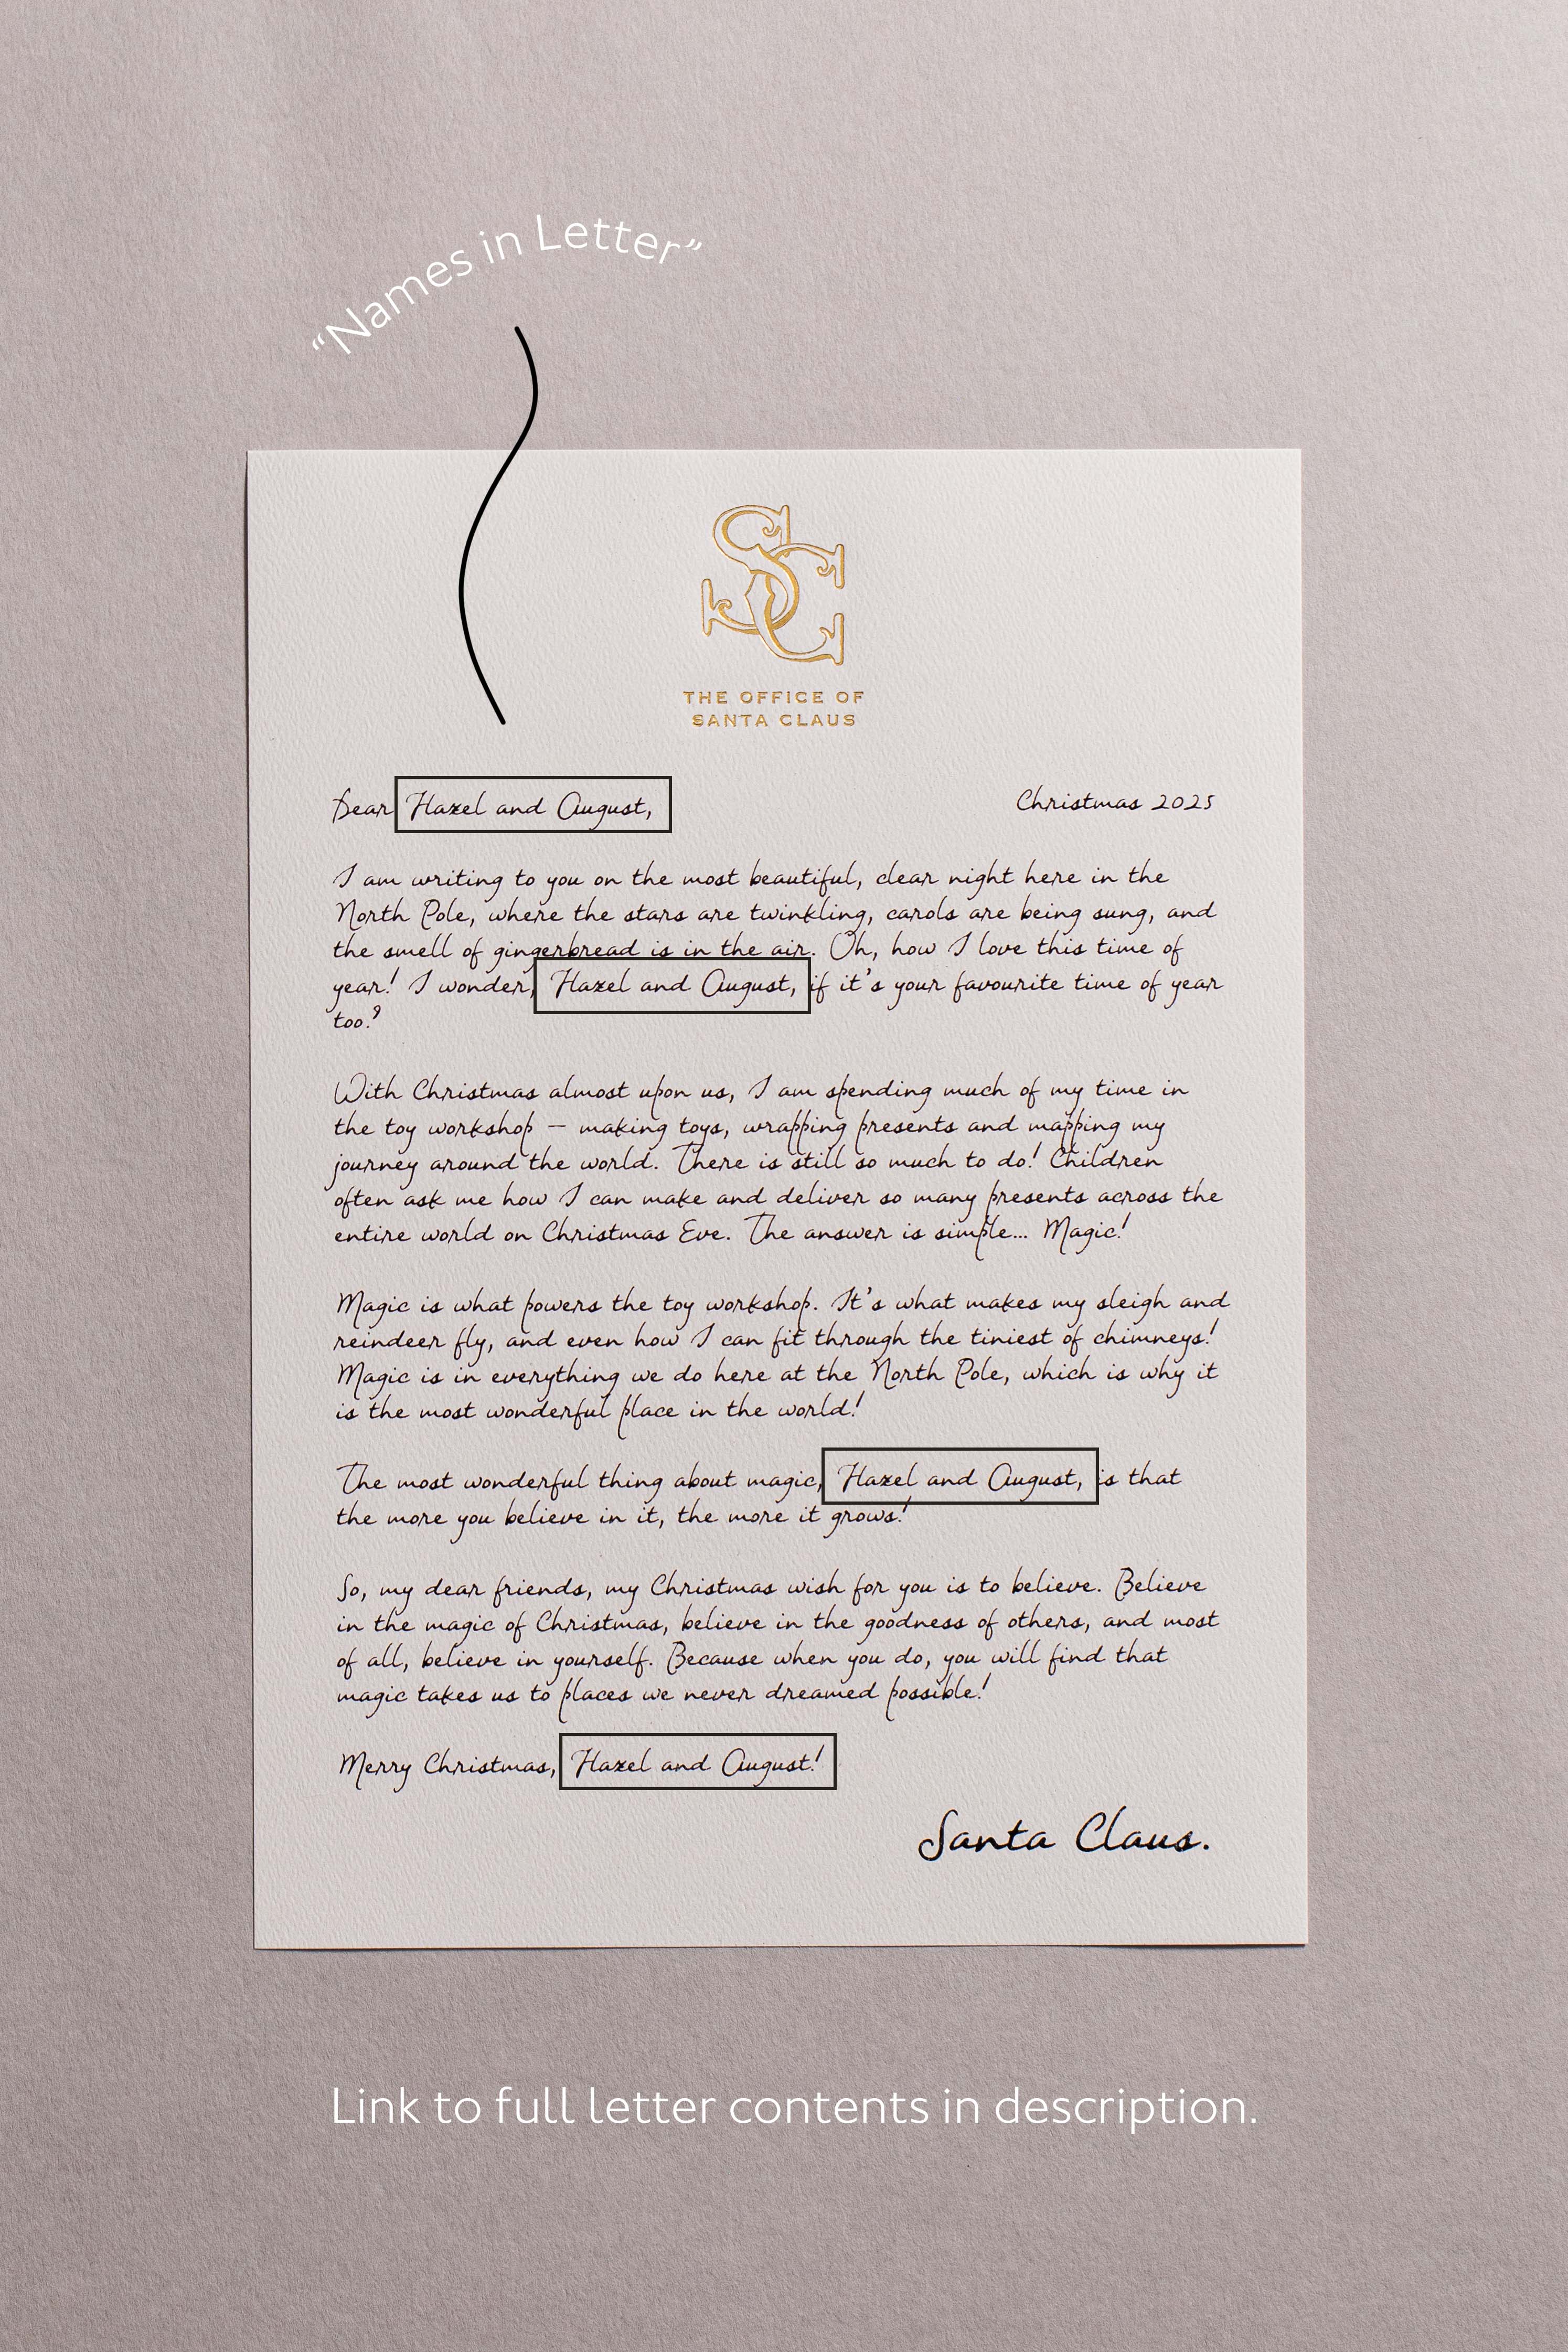 “Names in Letter”
SC
THE OFFICE OF
SANTA CLAUS
Dear Hazel and August,
Christmas 2025
I am writing to you on the most beautiful, clear night here in the
North Pole, where the stars are twinkling, carols are being sung, and
the smell of gingerbread is in the air. Oh, how I love this time of
year! I wonder, Hazel and August, if it’s your favourite time of year
too?
With Christmas almost upon us, I am spending much of my time in
the toy workshop – making toys, wrapping presents and mapping my
journey around the world. There is still so much to do! Children
often ask me how I can make and deliver so many presents across the
entire world on Christmas Eve. The answer is simple... Magic!
Magic is what powers the toy workshop. It’s what makes my sleigh and
reindeer fly, and even how I can fit through the tiniest of chimneys!
Magic is in everything we do here at the North Pole, which is why it
is the most wonderful place in the world!
The most wonderful thing about magic, Hazel and August, is that
the more you believe in it, the more it grows!
So, my dear friends, my Christmas wish for you is to believe. Believe
in the magic of Christmas, believe in the goodness of others, and most
of all, believe in yourself. Because when you do, you will find that
magic takes us to places we never dreamed possible!
Merry Christmas, Hazel and August!
Santa Claus.
Link to full letter contents in description.